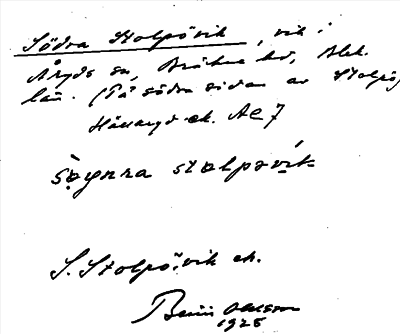 Södra Stolpövik, vik i
Åryds sn, Bräkne hd, Blek.
län. (På södra sidan av Stolpö)
Hällaryd ek. Ae 7
søynra stolpøvik
S. Stolpövik ek.
Ohlsson
1925